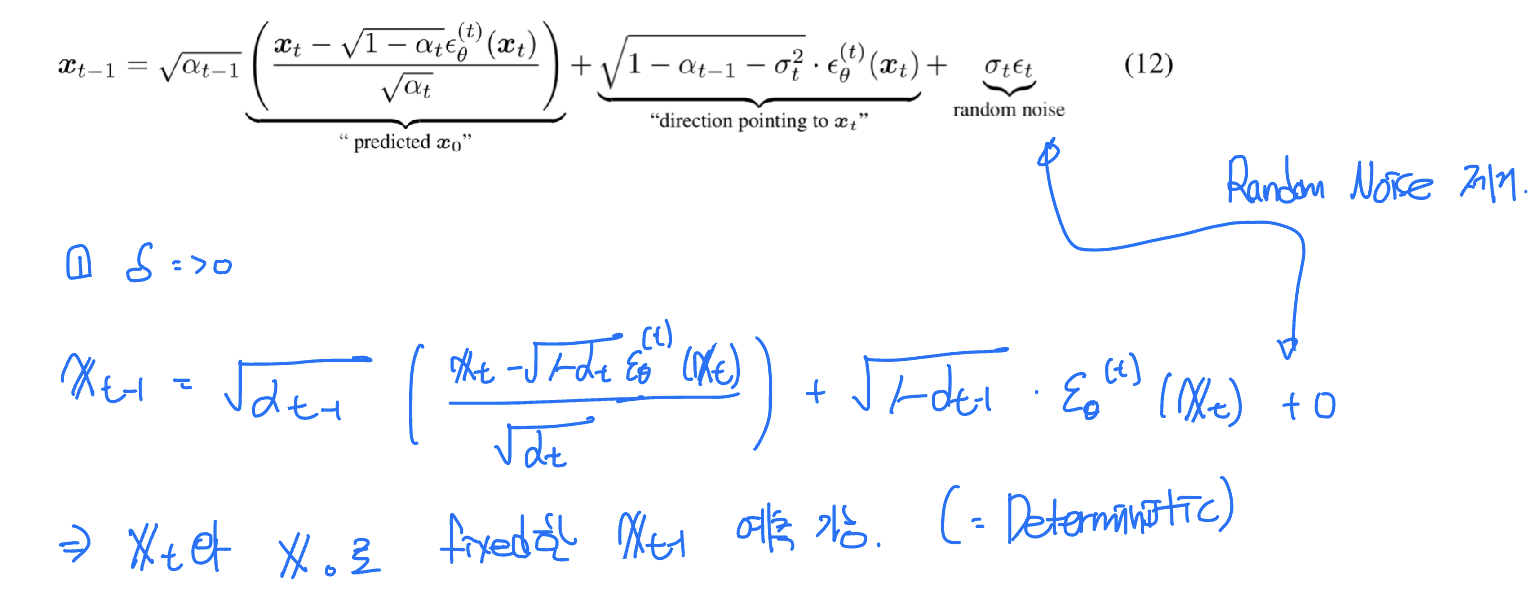 x_{t-1} = √α_{t-1} ( (x_t − √(1 − α_t) ε_θ^{(t)}(x_t)) / √α_t ) + √(1 − α_{t-1} − σ_t^2) · ε_θ^{(t)}(x_t) + σ_t ε_t (12)
“ predicted x_0”
“direction pointing to x_t”
random noise
Random Noise 제거.
1 δ => 0
x_{t-1} = √α_{t-1} ( (x_t − √(1-α_t) ε_θ^{(t)}(x_t)) / √α_t ) + √(1-α_{t-1}) · ε_θ^{(t)}(x_t) + 0
⇒ x_t와 x_0로 fixed한 x_{t-1} 예측 가능. (= Deterministic)